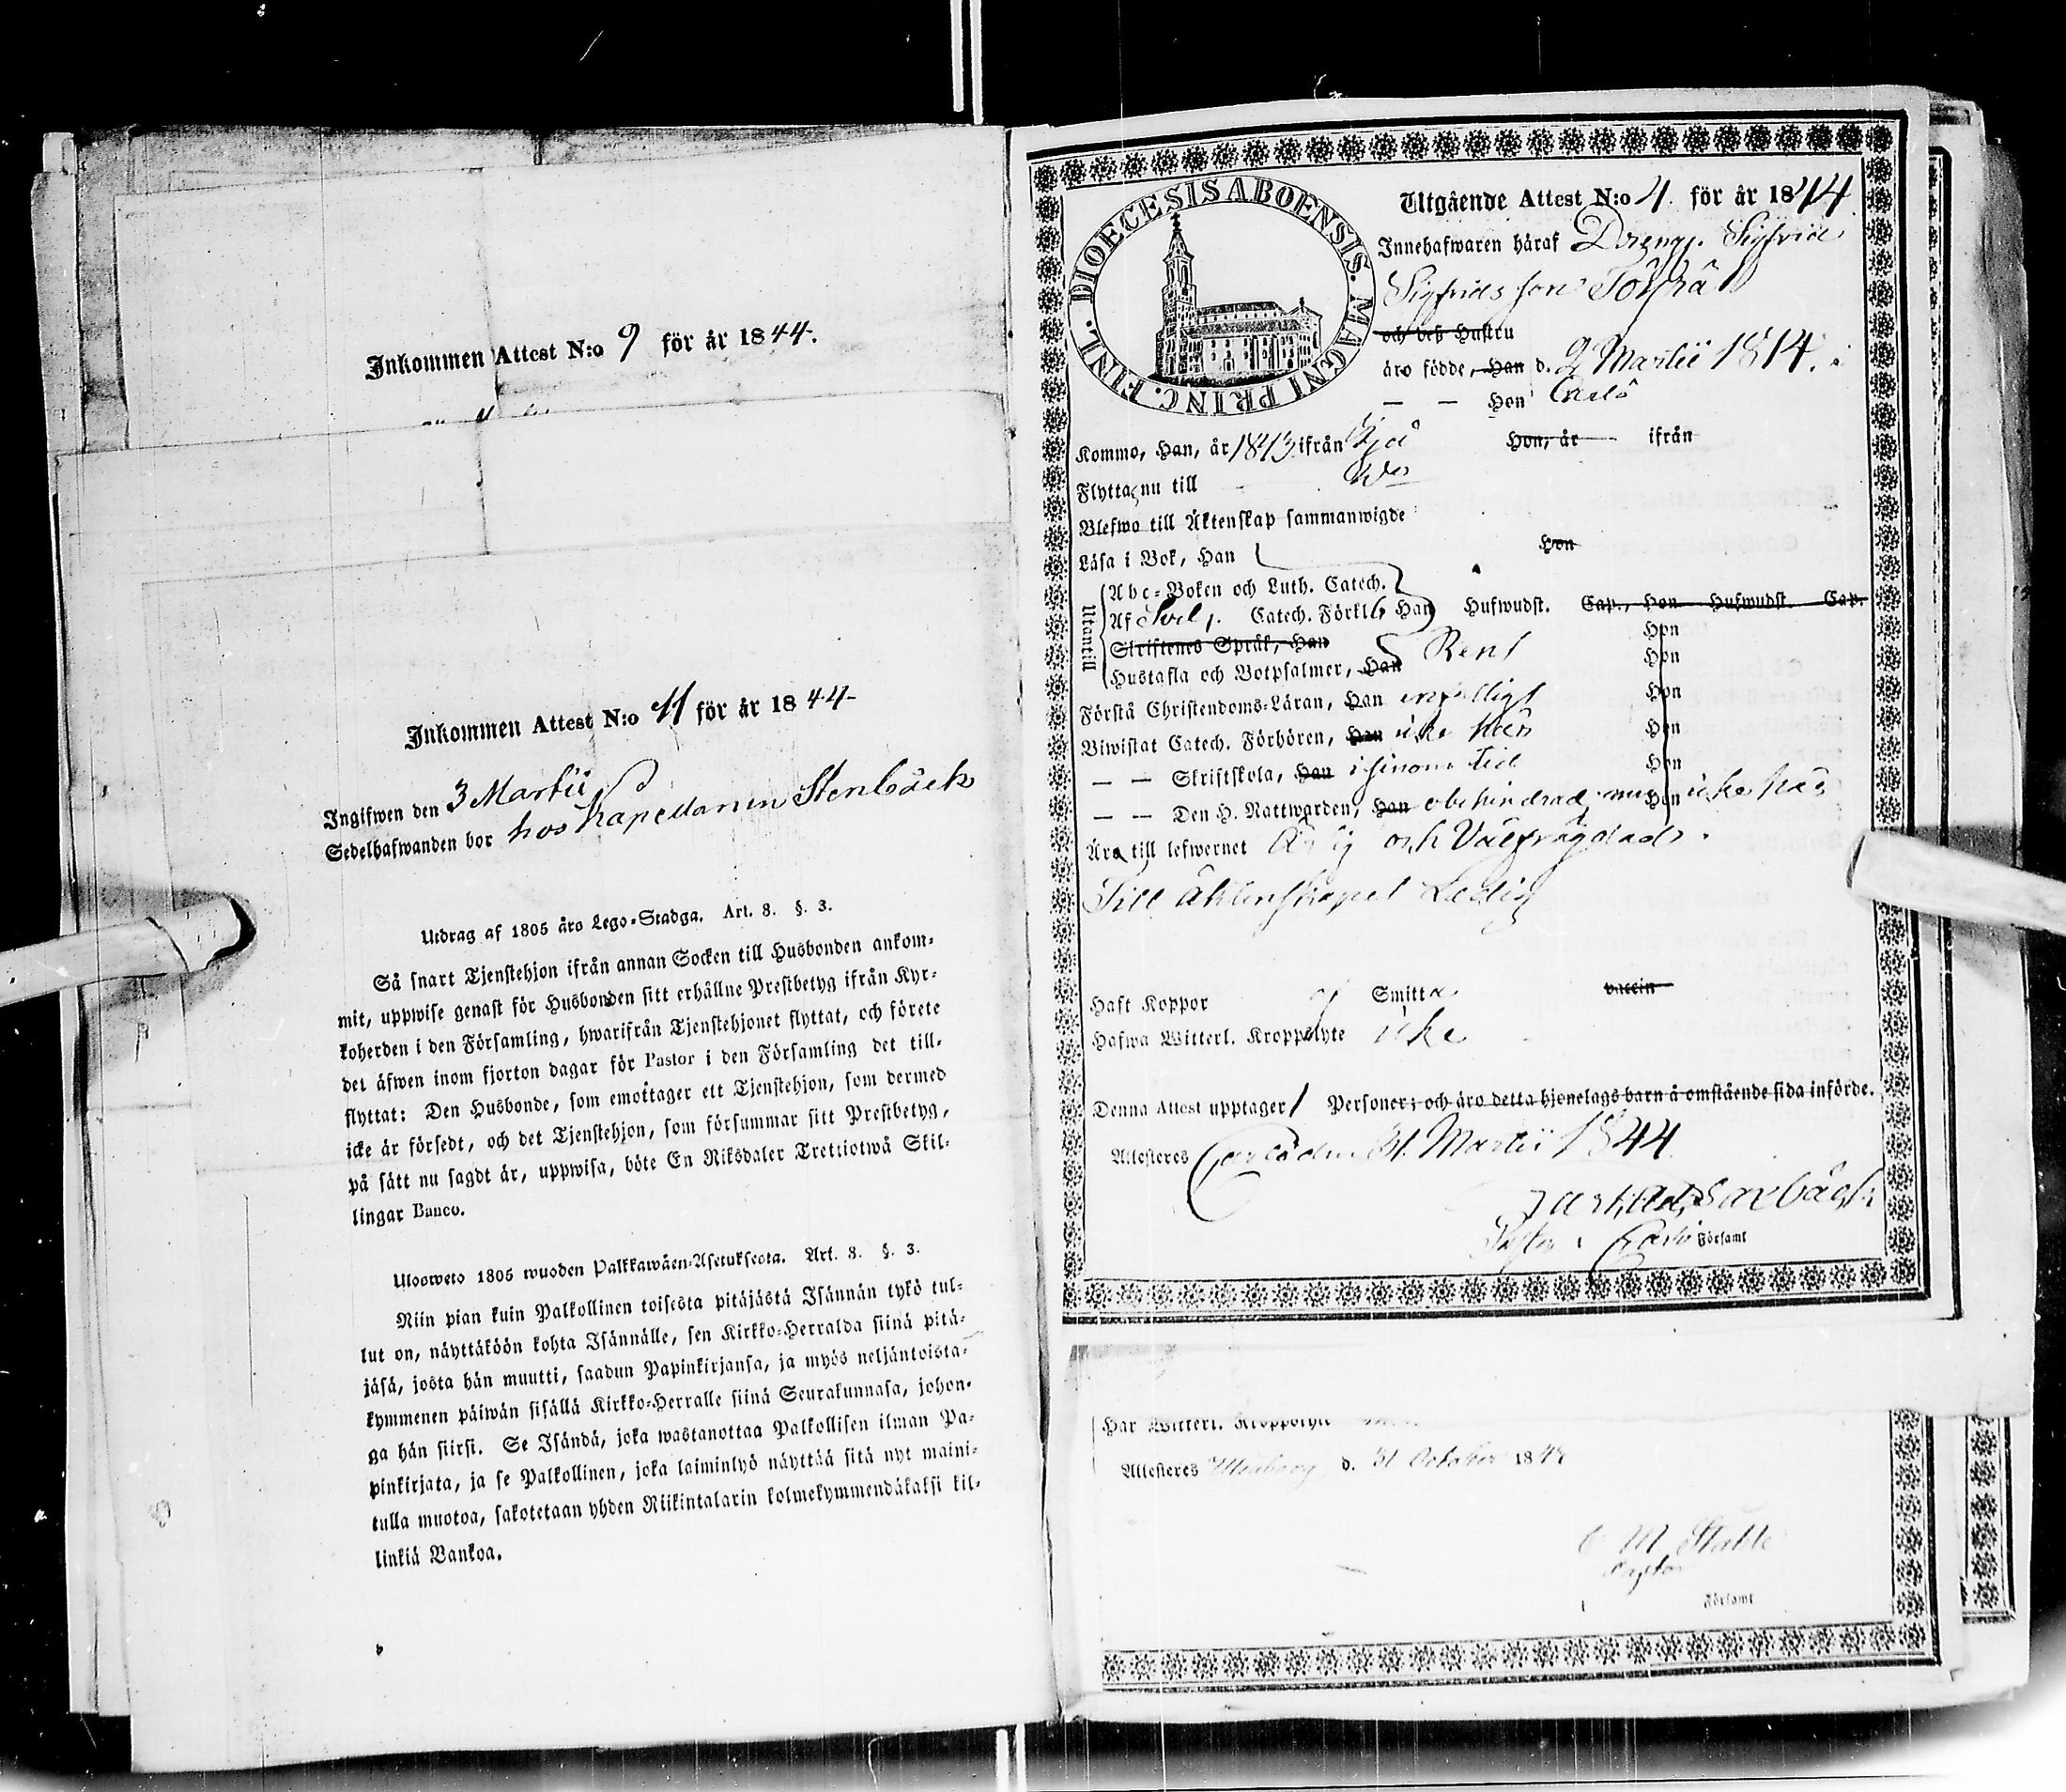 Inkommen Attest N:o 9 för år 1844.
Inkommen Attest N:o 11 för år 1844
Ingifwen den 3 Martii
Sedelhafwanden bor hos Kapellanen Stenbäck
Utdrag af 1805 års Lego-Stadga. Art. 8. §. 3.
Så snart Tjenstehjon ifrån annan Socken till Husbonden ankom-
mit, uppwise genast för Husbonden sitt erhållne Prestbetyg ifrån Kyr-
koherden i den Församling, hwarifrån Tjenstehjonet flyttat, och förete
det äfwen inom fjorton dagar för Pastor i den Församling det till-
flyttat: Den Husbonde, som emottager ett Tjenstehjon, som dermed
icke är försedt, och det Tjenstehjon, som försummar sitt Prestbetyg,
på sätt nu sagdt är, uppwisa, böte En Riksdaler Trettiotwå Skil-
lingar Banco.
Ulosweto 1805 wuoden Palkkawäen-Asetuksesta. Art. 8. §. 3.
Niin pian kuin Palkollinen toisesta pitäjästä Isännän tykö tul-
lut on, näyttäköön kohta Isännälle, sen Kirkko-Herralda siinä pitä-
jäsä, josta hän muutti, saadun Papinkirjansa, ja myös neljäntoista-
kymmenen päiwän sisällä Kirkko-Herralle siinä Seurakunnasa, johon-
ga hän siirsi. Se Isändä, joka wastanottaa Palkollisen ilman Pa-
pinkirjata, ja se Palkollinen, joka laiminlyö näyttää sitä nyt maini-
tulla muotoa, sakotetaan yhden Riikintalarin kolmekymmendäkaksi kil-
linkiä Bankoa.
DIOECESIS ABOENSIS. MAGNI PRINC. FINL.
Utgående Attest N:o 4. för år 1844
Innehafwaren häraf Drengen Sigfrid
Sigfridsson
och deß Hustru
äro födde, Han d. 2 Martii 1814. i
— — Hon Carlö
Kommo, Han, år 1843 ifrån Hon, år ifrån
Flytta nu till
Blefwo till Äktenskap sammanwigde
Läsa i Bok, Han Hon
Utantill
Abc-Boken och Luth. Catech.
Af Svel. Catech. Förkl. Han Hufwudst. Cap., Hon Hufwudst. Cap.
Skriftenes Språk, Han Hon
Hustafla och Botpsalmer, Han Rent Hon
Förstå Christendoms-Läran, Han enfalligt Hon
Biwistat Catech. Förhören, Han icke här Hon
— — Skriftskola, Han i sinom tid Hon
— — Den H. Nattwarden, Han obehindrad, men Hon icke här
Äro till lefwernet Ärlig och Välfrägdad.
Till äktenskapet Ledig
Haft Koppor af Smitta vaccin
Hafwa Witterl. Kroppslyte icke
Denna Attest upptager 1 Personer; och äro detta hjonelags barn å omstående sida införde.
Attesteres Carlö den 31. Martii 1844
Pastor i Carlö Församl
Har Witterl. Kroppslyte
Attesteres Uleåborg d. 31 October 184
C M Ståhle
Pastor
i Församl